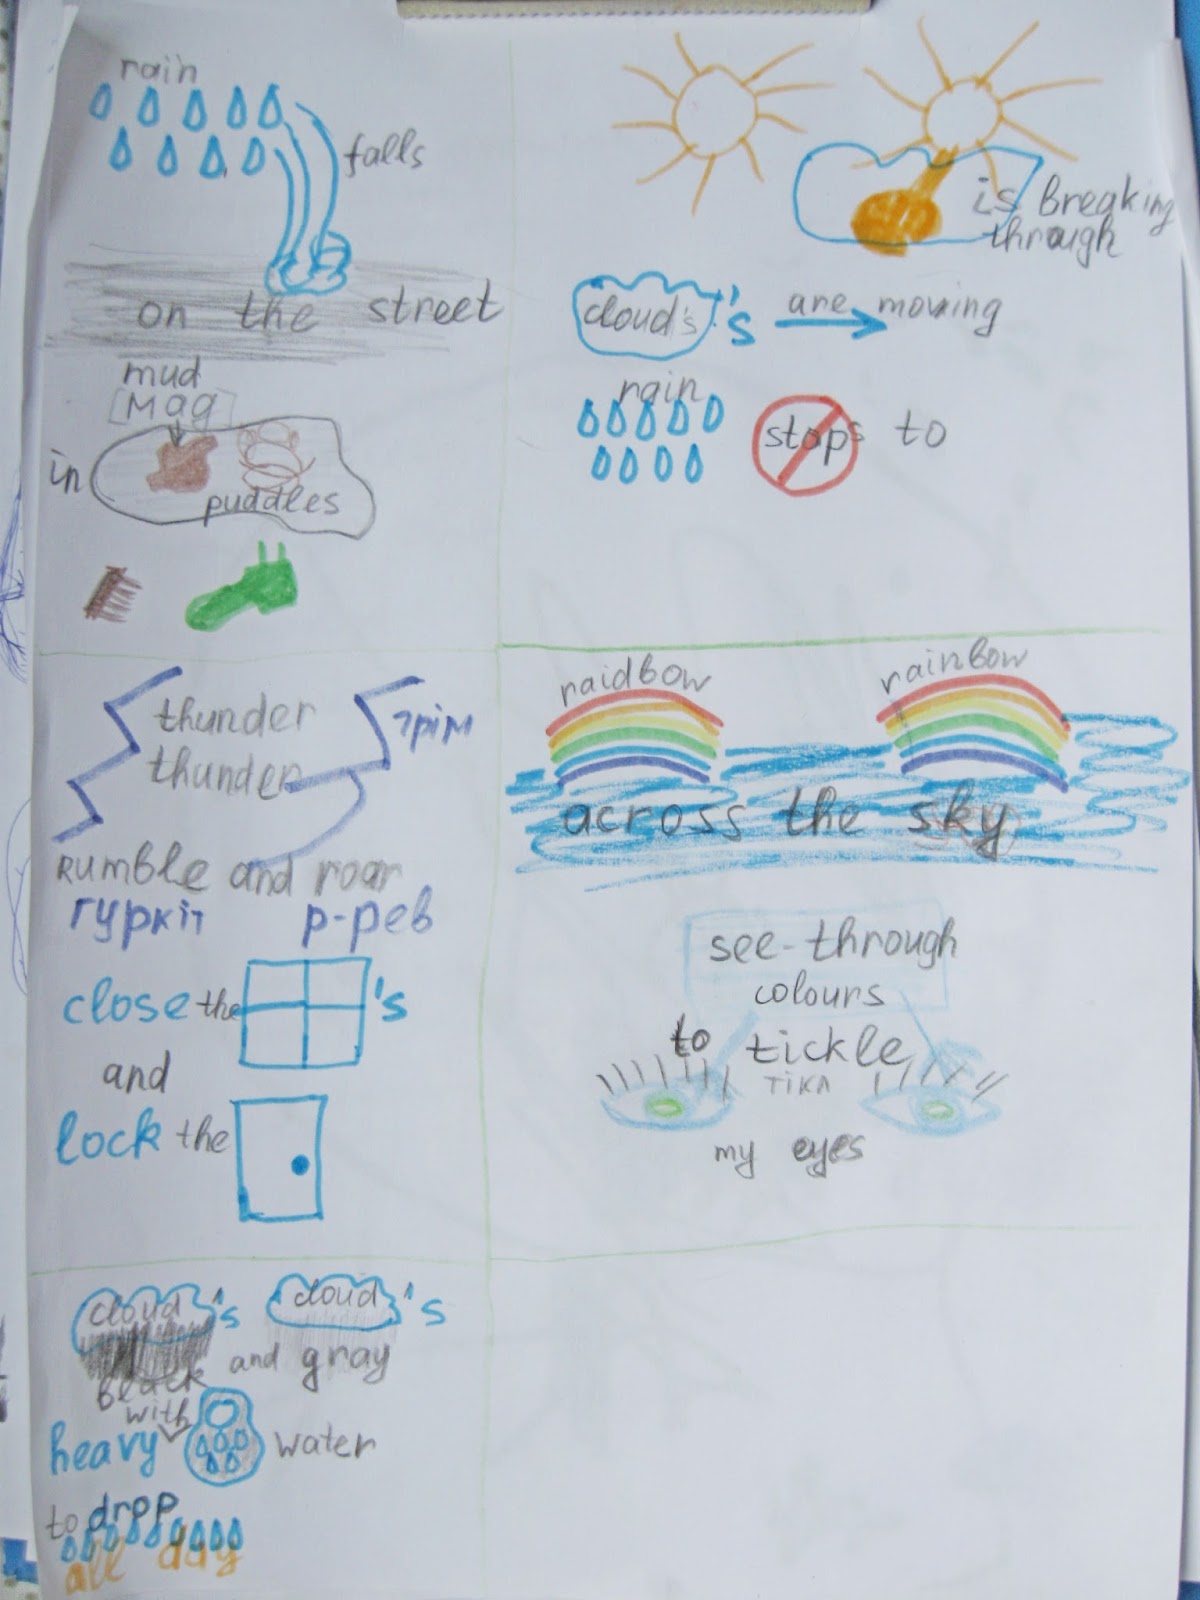 rain
falls
on the street
mud
[мад]
in
puddles
thunder
грім
thunder
Rumble and roar
гуркіт р-рев
close the 's
and
lock the
cloud's cloud's
black and gray
with
heavy water
to drop
all day
is Breaking
through
cloud's 's are moving
rain
stops to
raidbow rainbow
across the sky
see-through
colours
to tickle
тікл
my eyes